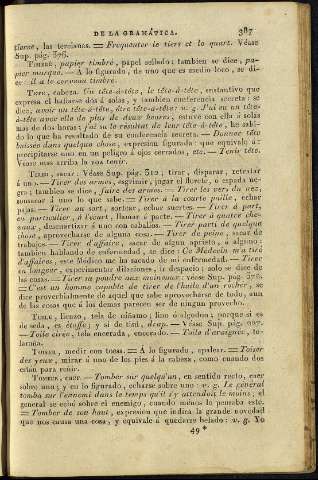 DE LA GRAMÁTICA. 387
tianas, las tercianas. = Frequenter le tiers et le quart. Véase
Sup. pág. 376.
TIMBRE, papier timbré, papel sellado: tambien se dice, pa-
pier marque. — A lo figurado, de uno que es medio loco, se di-
ce: il a le cerveau timbré.
TETE, cabeza. Un tête-à-tête, le tête-à-tête, sustantivo que
expresa el hallarse dos á solas, y tambien conferencia secreta: se
dice; avoir un tête-à-tête, être tête-à-tête: v. g. J'ai eu un tête-
à-tête avec elle de plus de deux heures, estuve con ella á solas
mas de dos horas: j'ai su le résultat de leur tête-à-tête, he sabi-
do lo que ha resultado de su conferencia secreta. — Donner tête
baissée dans quelque chose, expresion figurada: que equivale á:
precipitarse uno en un peligro á ojos cerrados, etc. — Tenir tête.
Véase mas arriba la voz tenir.
TIRER, sacar: (Véase Sup. pág. 310), tirar, disparar, retratar
á uno. — Tirer des armes, esgrimir, jugar el florete, ó espada ne-
gra; tambien se dice, faire des armes. — Tirer les vers du nez,
sonsacar á uno lo que sabe. = Tirer à la courte paille, echar
pajas. — Tirer au sort, sortear, echar suertes. — Tirer à part,
en particulier, à l'écart, llamar á parte. — Tirer à quatre che-
vaux, desquartizar á uno con caballos. — Tirer parti de quelque
chose, aprovecharse de alguna cosa. — Tirer de peine, sacar de
trabajos. — Tirer d'affaire, sacar de algun aprieto, ó alguno;
tambien hablando de enfermedad, se dice: Ce Médecin m'a tiré
d'affaire, este Médico me ha sacado de mi enfermedad. — Tirer
en longueur, experimentar dilaciones, ir despacio: solo se dice de
las cosas. — Tirer sa poudre aux moineaux. Véase Sup. pág. 376.
= C'est un homme capable de tirer de l'huile d'un rocher, se
dice proverbialmente de aquel que sabe aprovecharse de todo, aun
de las cosas que á los demas parecen ser de ningun provecho.
TOILE, lienzo, tela de cáñamo, lino ó algodon; porque si es
de seda, es étoffe; y si de tisú, drap. — Véase Sup. pág. 227.
— Toile cirée, tela encerada, encerado. — Toile d'araignée, te-
laraña.
TOISER, medir con toesa. = A lo figurado, apalear. = Toiser
des yeux, mirar á uno de los pies á la cabeza, como cuando dos
están para reñir.
TOMBER, caer. — Tomber sur quelqu'un, en sentido recto, caer
sobre uno; y en lo figurado, echarse sobre uno: v. g. Le général
tomba sur l'ennemi dans le temps qu'il s'y attendoit le moins, el
general se echó sobre el enemigo, cuando ménos lo pensaba este.
= Tomber de son haut, expresion que indica la grande novedad
que nos causa una cosa, y equivale á quedarse helado: v. g. Yo
49 *